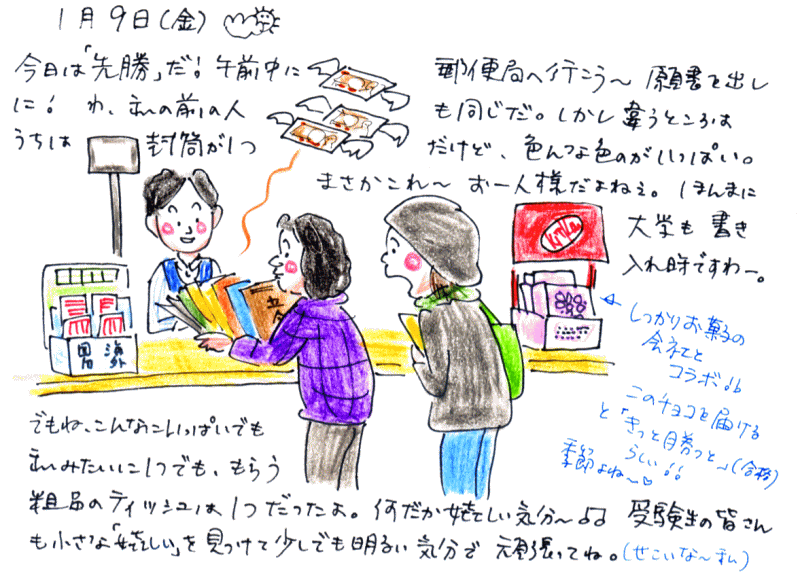 1月9日(金)
今日は「先勝」だ! 午前中に
郵便局へ行こう〜 願書を出し
に! わ、私の前の人
も同じだ。しかし違うところは
うちは 封筒が1つ
だけど、色んな色のがいっぱい。
まさかこれ〜 お一人様だよねぇ。ほんまに
大学も書き
入れ時ですわー。
KitKat
立命
海外
しっかりお菓子の
会社と
コラボ!!
このチョコを届ける
と「きっと勝つと」(合格)
らしい!!
季節よね〜♡
でもね、こんなにいっぱいでも
私みたいに1つでも、もらう
粗品のティッシュは1つだったよ。何だか嬉しい気分〜♫ 受験生の皆さん
も小さな「嬉しい」を見つけて少しでも明るい気分で 頑張ってね。(せこいな〜私)